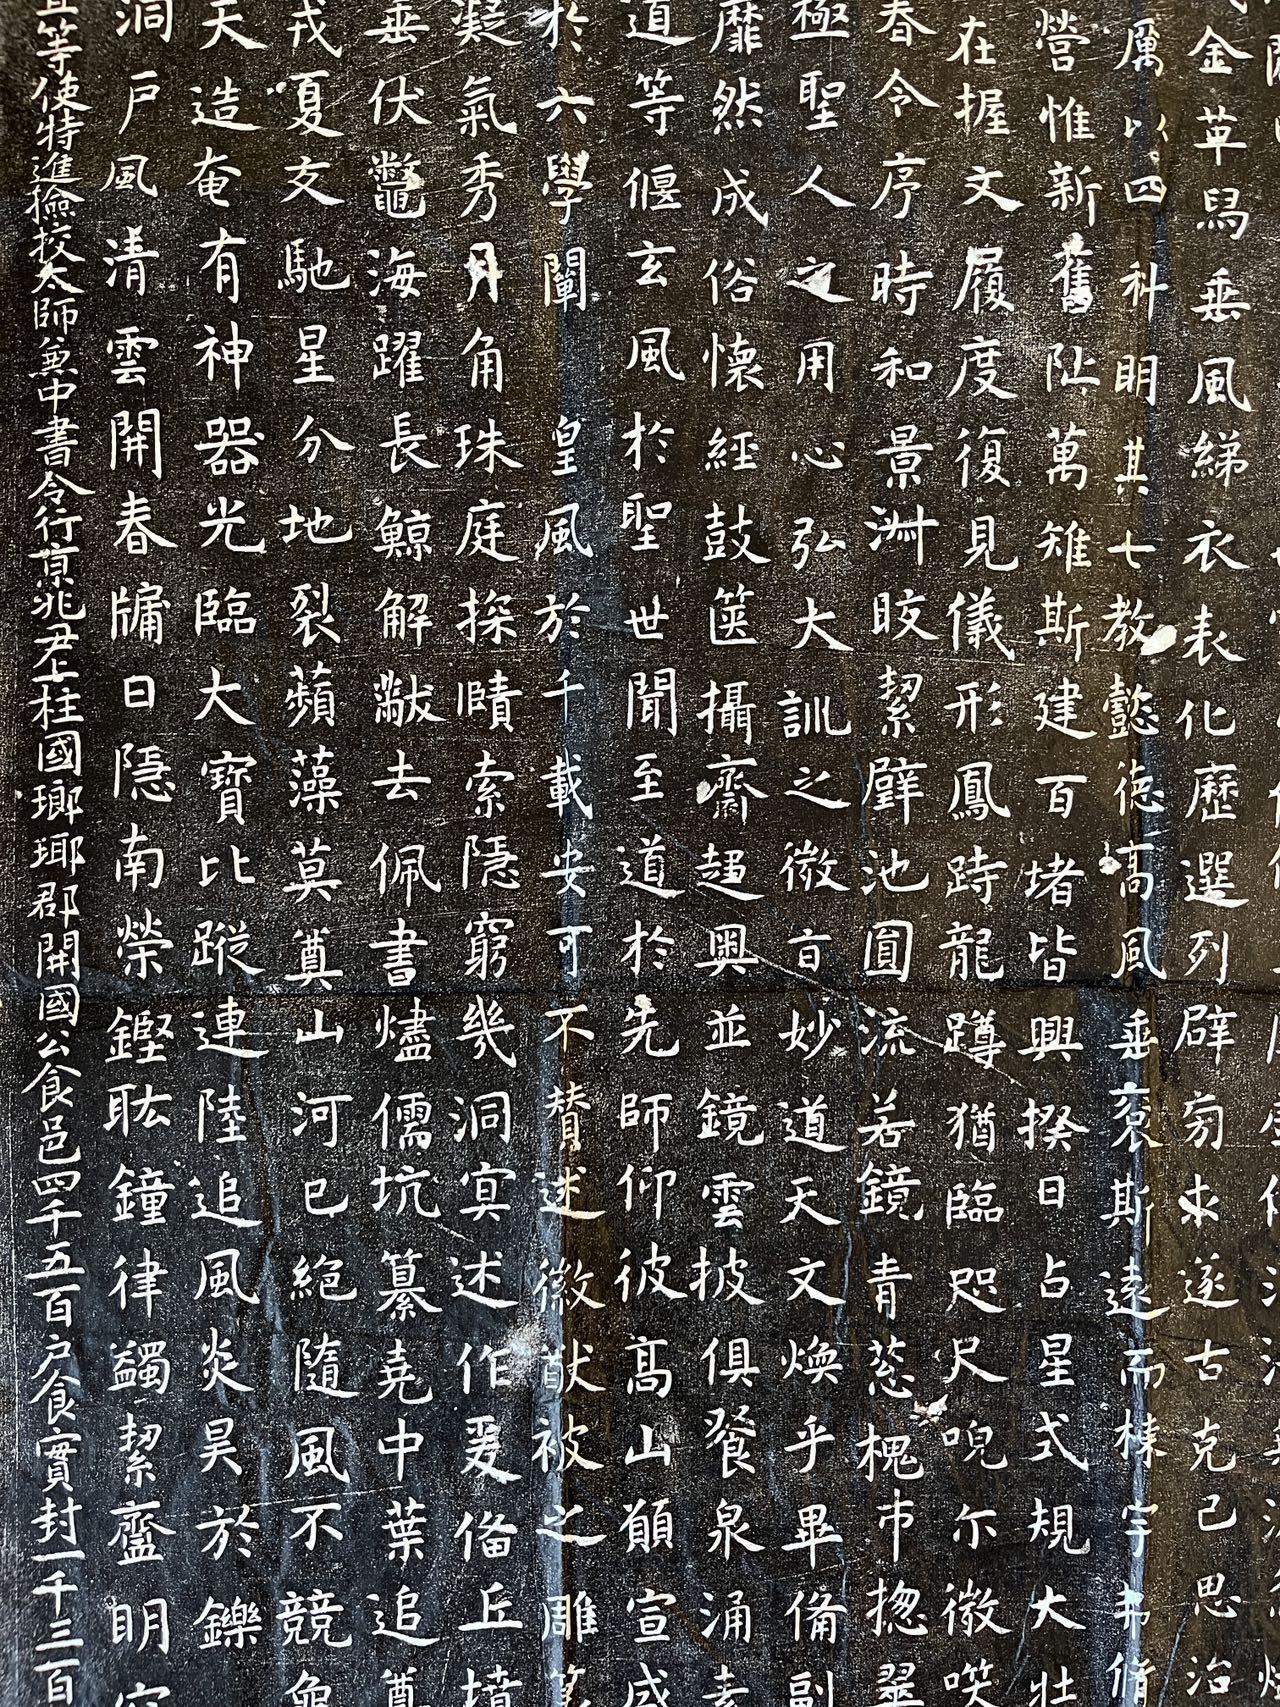 金革舄垂風綈衣表化歷選列辟旁求遂古克己思治
厲以四科明其七教懿德高風垂裒斯遠而棟宇弗脩
營惟新舊阯萬雉斯建百堵皆興揆日占星式規大壯
在握文履度復見儀形鳳跱龍蹲猶臨咫尺唲尒微笑
春令序時和景淑皎絜璧池圓流若鏡青葱槐市揔翠
極聖人之用心弘大訓之微言妙道天文煥乎畢備副
靡然成俗懷經鼓篋攝齊趨奧並鏡雲披俱飡泉涌素
道等偃玄風於聖世聞至道於先師仰彼高山願宣盛
於六學闡皇風於千載安可不贊述徽猷被之雕篆
凝氣秀月角珠庭探賾索隱窮幾洞冥述作爰俻丘墳
垂伏鼈海躍長鯨解黻去佩書燼儒坑纂堯中葉追尊
戎夏交馳星分地裂蘋藻莫奠山河已絕隨風不競龜
天造奄有神器光臨大寶比蹤連陸追風炎昊於鑠
洞戶風清雲開春牖日隱南榮鏗耾鐘律蠲絜齍明容
等使特進撿挍太師兼中書令行京兆尹上柱國瑯琊郡開國公食邑四千五百户食實封一千三百